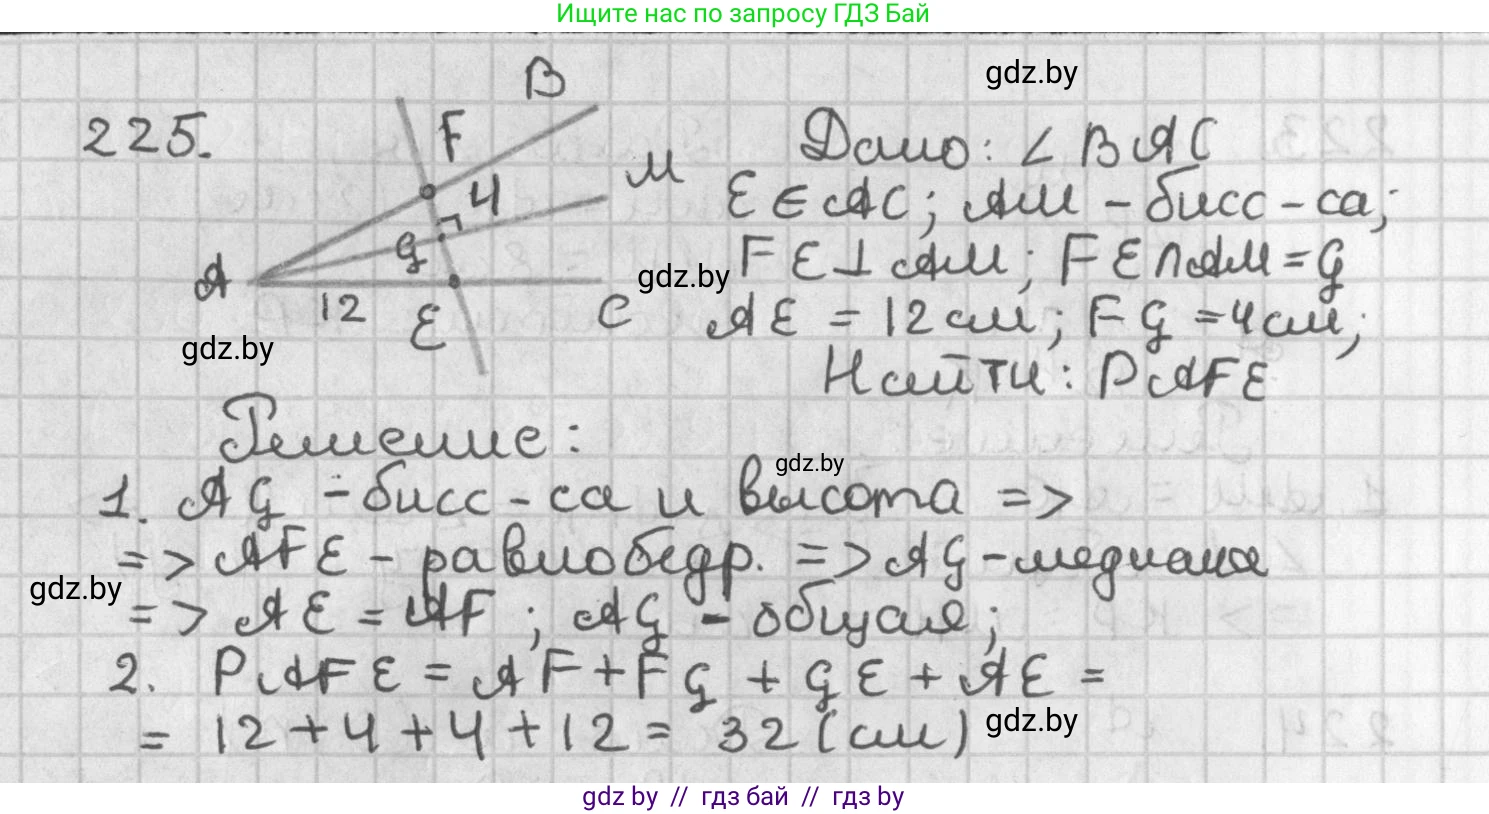 Ищите нас по запросу ГДЗ Бай
gdz.by
225.
B
F
M
4
G
A
12
E
C
Дано: ∠ BAC
E ∈ AC; AM - бисс-са;
FE ⊥ AM; FE ∩ AM = G
gdz.by
AE = 12 см; FG = 4 см;
gdz.by
Найти: PAFE
Решение:
gdz.by
1. AG - бисс-са и высота =>
=> AFE - равнобедр. => AG - медиана
gdz.by
=> AE = AF; AG - общая;
2. PAFE = AF + FG + GE + AE =
= 12 + 4 + 4 + 12 = 32 (см)
gdz.by
gdz by // гдз бай // гдз by